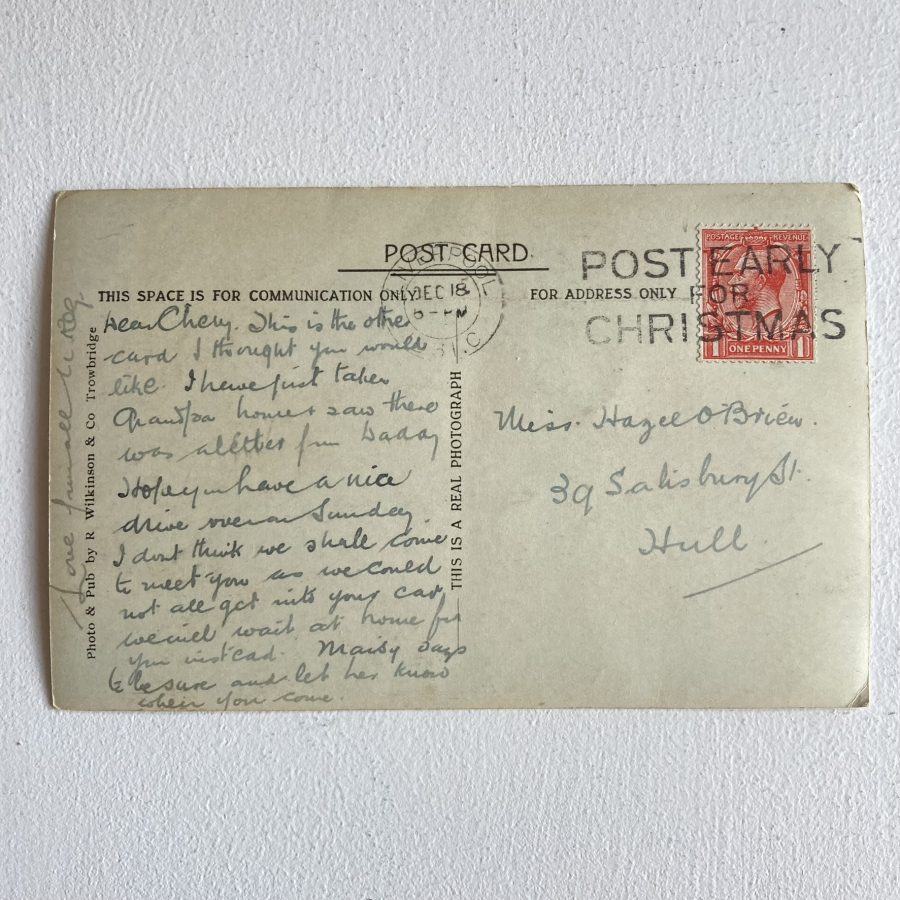 POST CARD
THIS SPACE IS FOR COMMUNICATION ONLY.
FOR ADDRESS ONLY
DEC 18
POST EARLY
FOR
CHRISTMAS
POSTAGE REVENUE
1 ONE PENNY 1
Dear Chery. This is the other
card I thought you would
like. I have just taken
Grandpa home & saw there
was a letter from Daddy
Hope you have a nice
drive over on Sunday
I dont think we shall come
to meet you as we could
not all get into your car
we will wait at home for
you instead. Maisy says
to be sure and let her know
when you come.
Love from all
Photo & Pub by R Wilkinson & Co Trowbridge
THIS IS A REAL PHOTOGRAPH
Miss. Hazel O'Brien.
39 Salisbury St.
Hull.